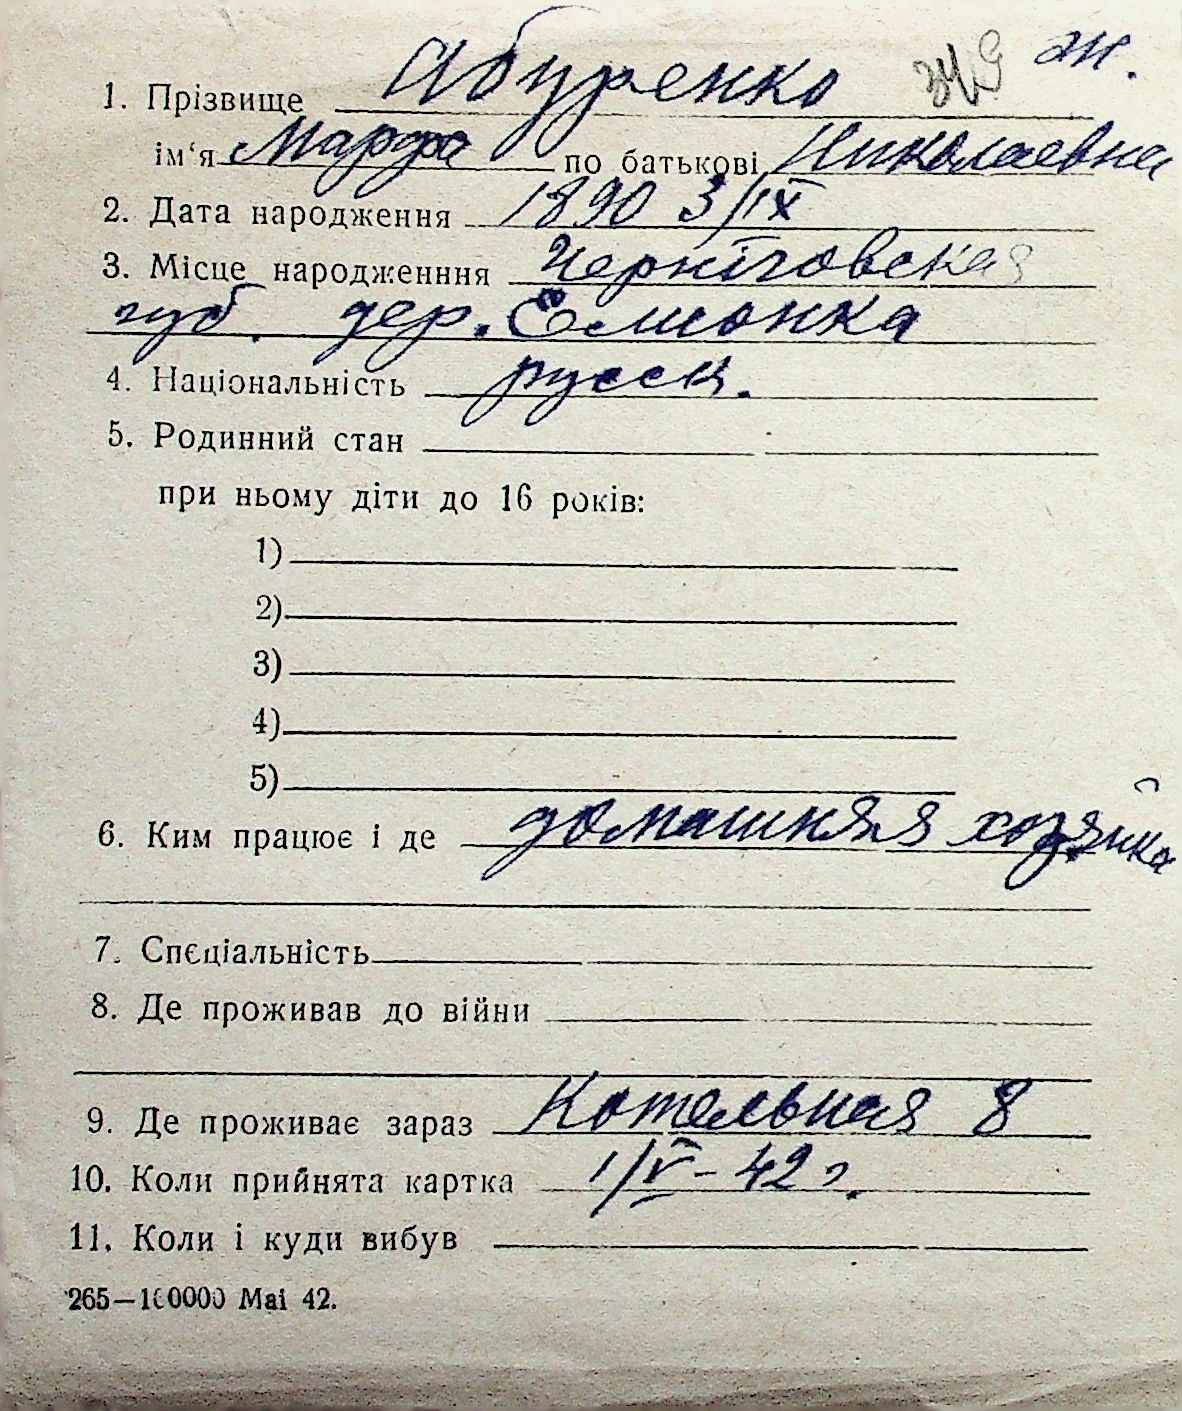 1. Прізвище Абуренко 349 ж.
ім‘я Марфа по батькові Николаевна
2. Дата народження 1890 3/IX
3. Місце народженння Черніговская
губ. дер. Ёлионка
4. Національність русск.
5. Родинний стан
при ньому діти до 16 років:
1)
2)
3)
4)
5)
6. Ким працює і де домашняя хозяйка
7. Спєціальність
8. Де проживав до війни
9. Де проживає зараз Котельная 8
10. Коли прийнята картка 1/V-42 г.
11. Коли і куди вибув
265—100000 Mai 42.